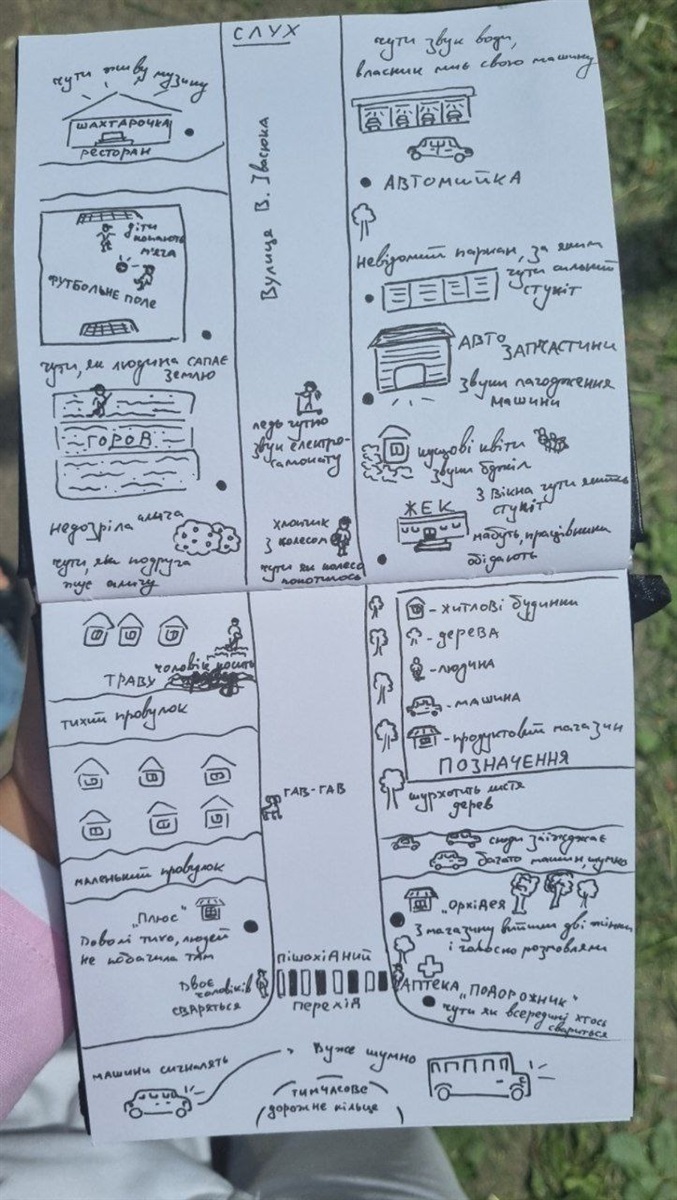 СЛУХ
чути живу музику
ШАХТАРОЧКА
РЕСТОРАН
діти
копають
м'яча
ФУТБОЛЬНЕ ПОЛЕ
чути, як людина САПАЄ
ЗЕМЛЮ
ГОРОД
недозріла алича
чути, як подруга
їсть аличу
Вулиця В. Івасюка
ледь чутно
звук електро-
самокату
хлопчик
з колесом
чути як колесо
покотилось
чути звук води,
власник миє свою машину
АВТОМИЙКА
невідомий паркан, за яким
чути сильний
стукіт
АВТО
ЗАПЧАСТИНИ
звуки лагодження
машини
кущові квіти
звуки бджіл
ЖЕК
з вікна чути якийсь
стукіт
мабуть, працівники
обідають
чоловік косить
ТРАВУ
тихий провулок
маленький провулок
"Плюс"
Доволі тихо, людей
не побачила там
Двоє
чоловіків
сваряться
ГАВ-ГАВ
пішохідний
перехід
- житлові будинки
- дерева
- людина
- машина
- продуктовий магазин
ПОЗНАЧЕННЯ
шурхотить листя
дерев
сюди заїжджає
багато машин, шумно
"Орхідея"
з магазину вийшли дві жінки
і голосно розмовляли
АПТЕКА "ПОДОРОЖНИК"
чути як всередині хтось
свариться
машини сигналять
Дуже шумно
тимчасове
дорожнє кільце